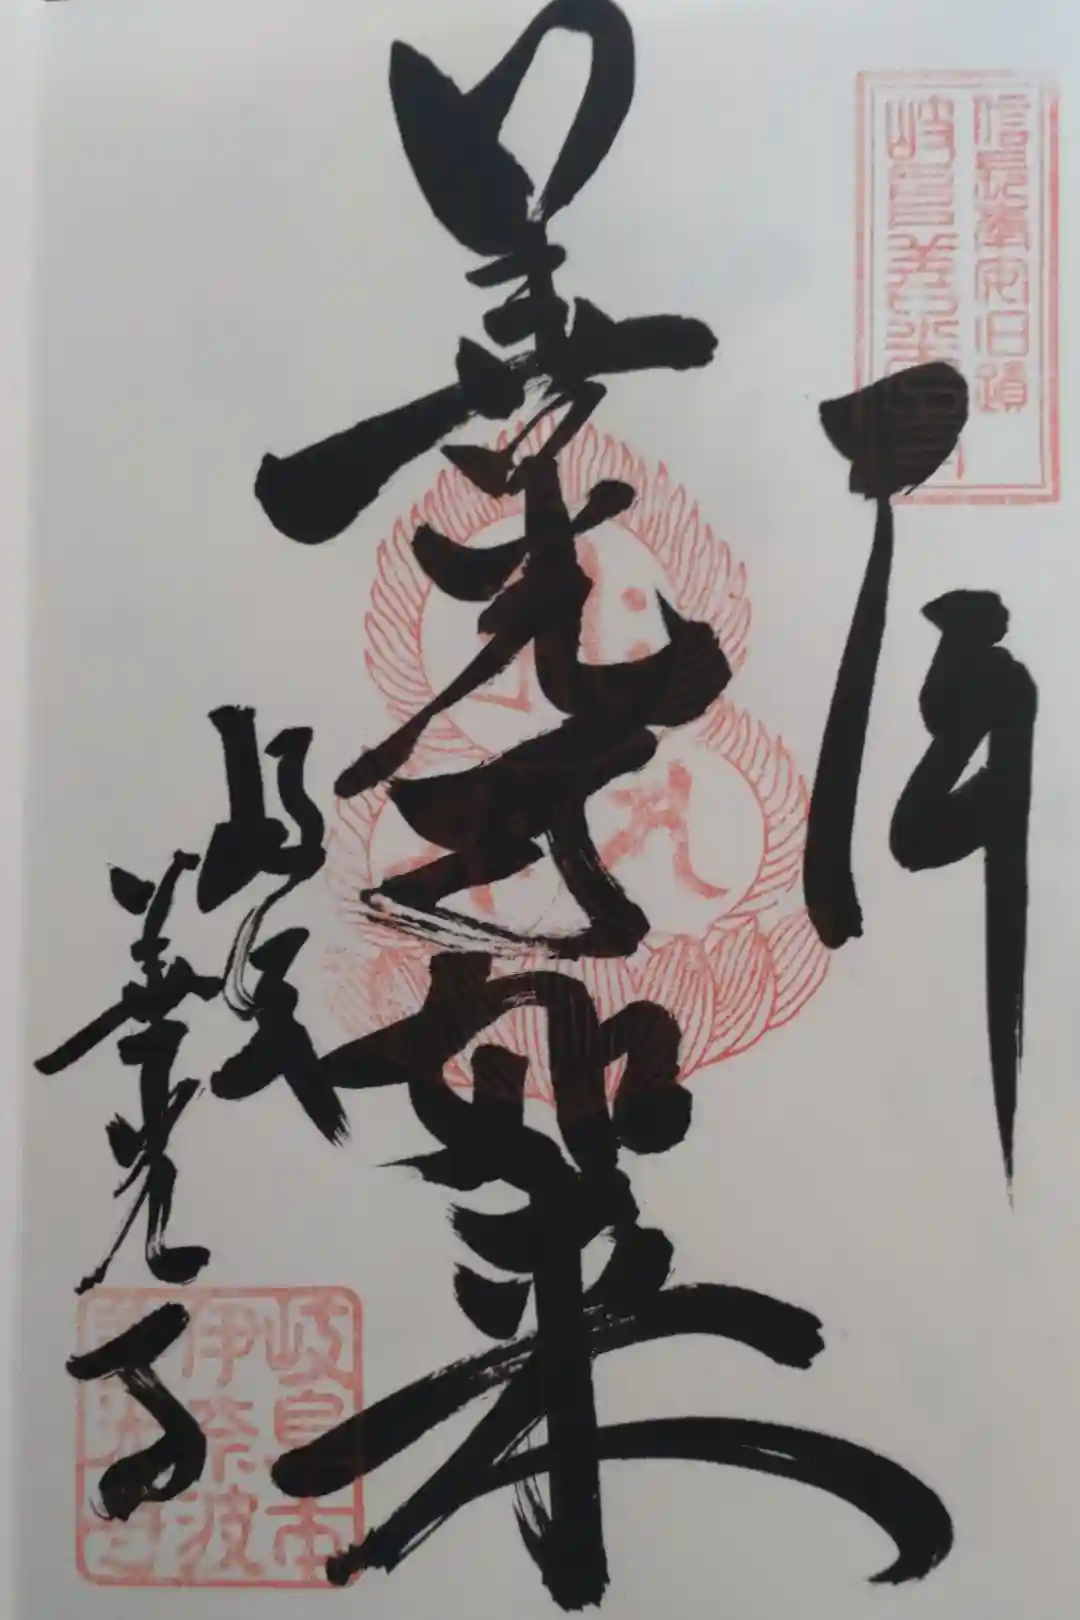 信長奉安旧蹟
岐阜善光寺
善光寺如来
岐阜
善光寺
岐阜市
伊奈波
善光寺